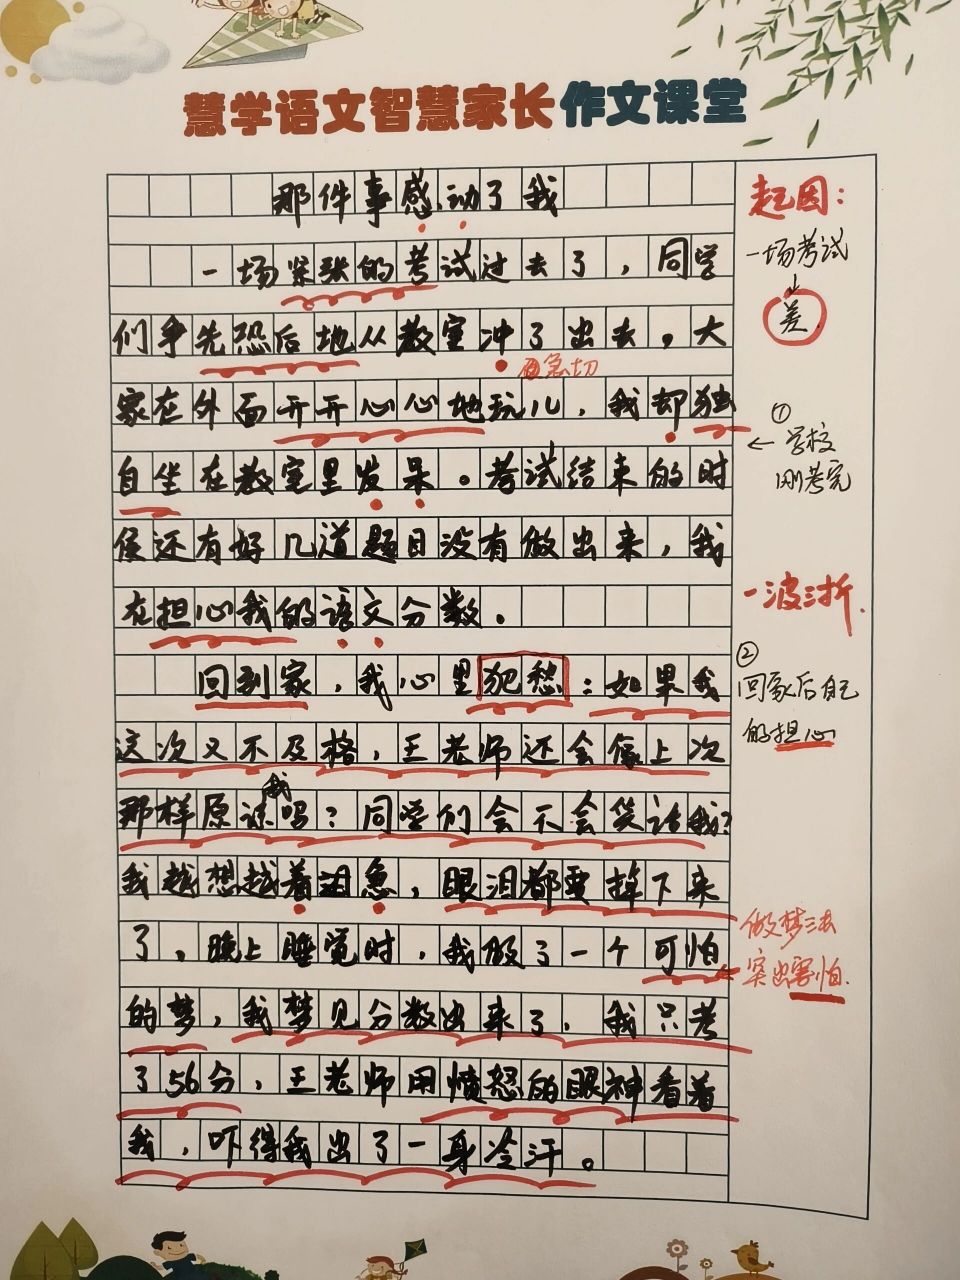 慧学语文智慧家长作文课堂
那件事感动了我
一场紧张的考试过去了，同学
们争先恐后地从教室冲了出去，大
急切
家在外面开开心心地玩儿，我却独
自坐在教室里发呆。考试结束的时
侯还有好几道题目没有做出来，我
在担心我的语文分数。
回到家，我心里犯愁：如果我
这次又不及格，王老师还会像上次
那样原谅我吗？同学们会不会笑话我？
我越想越着急，眼泪都要掉下来
了，晚上睡觉时，我做了一个可怕
的梦，我梦见分数出来了，我只考
了56分，王老师用愤怒的眼神看着
我，吓得我出了一身冷汗。
起因：
一场考试
↓
差
①
← 学校
刚考完
一波三折.
②
回家后自己
的担心
做梦法
突出害怕.